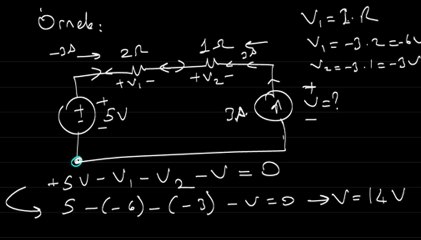 Örnek:
-3A 2Ω 1Ω 3A
+ V₁ - + V₂ -
+ - 5V
3A
+ V=? -
V₁ = I.R
V₁ = -3.2 = -6V
V₂ = -3.1 = -3V
+5V - V₁ - V₂ - V = 0
5 - (-6) - (-3) - V = 0 → V = 14V